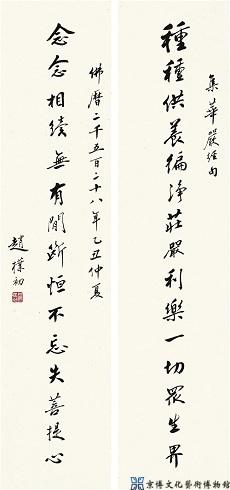 集華嚴經句
種種供養徧淨莊嚴利樂一切眾生界
念念相續無有間斷恒不忘失菩提心
佛曆二千五百二十八年乙丑仲夏
趙樸初
京博文化藝術博物館